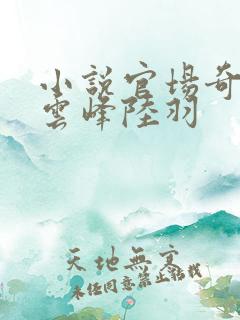 小說官場奇
雲峰陸羽
天地無寬
未經同意禁止轉載